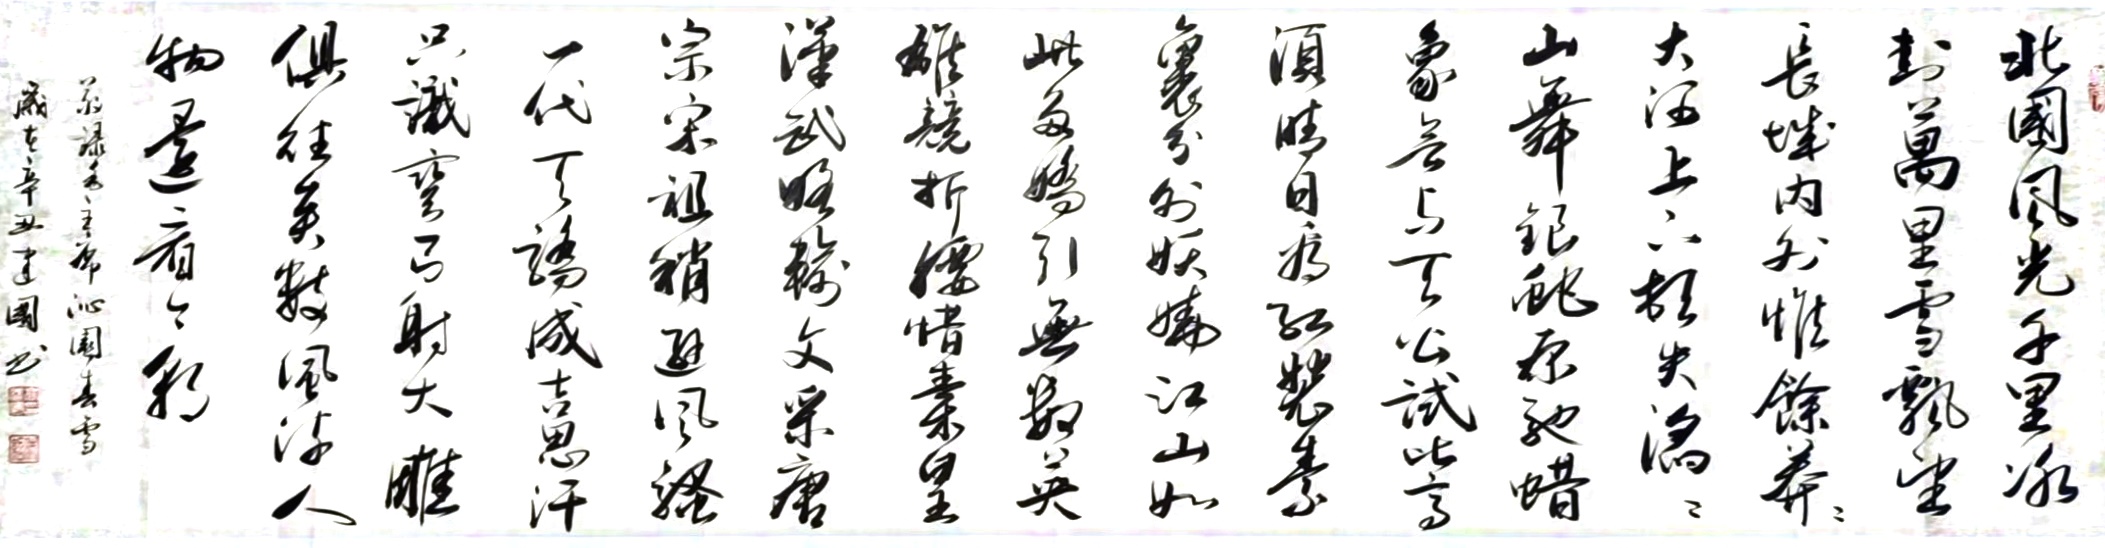 北國風光千里冰
封萬里雪飄望
長城內外惟餘莽〻
大河上下頓失滔〻
山舞銀蛇原馳蜡
象欲与天公試比高
須晴日看紅裝素
裹分外妖嬈江山如
此多嬌引無數英
雄競折腰惜秦皇
漢武略輸文采唐
宗宋祖稍遜風騷
一代天驕成吉思汗
只識彎弓射大雕
俱往矣數風流人
物還看今朝
恭錄毛主席沁園春雪
歲在辛丑建國书